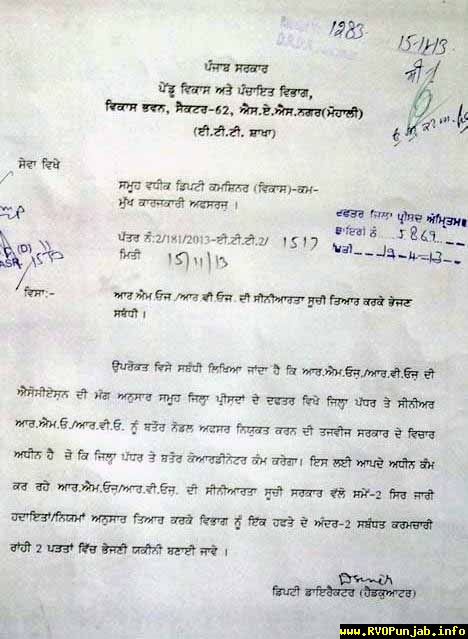 1283
15-11-13
ਪੰਜਾਬ ਸਰਕਾਰ
ਪੇਂਡੂ ਵਿਕਾਸ ਅਤੇ ਪੰਚਾਇਤ ਵਿਭਾਗ,
ਵਿਕਾਸ ਭਵਨ, ਸੈਕਟਰ-62, ਐਸ.ਏ.ਐਸ.ਨਗਰ(ਮੋਹਾਲੀ)
(ਈ.ਟੀ.ਟੀ. ਸ਼ਾਖਾ)
ਸੇਵਾ ਵਿਖੇ
ਸਮੂਹ ਵਧੀਕ ਡਿਪਟੀ ਕਮਸ਼ਿਨਰ (ਵਿਕਾਸ)-ਕਮ-
ਮੁੱਖ ਕਾਰਜਕਾਰੀ ਅਫਸਰਜ਼ ।
ਦਫਤਰ ਜਿਲ੍ਹਾ ਪ੍ਰੀਸ਼ਦ
ਡਾਇਰੀ ਨੰ 5869
ਪੱਤਰ ਨੰ:2/181/2013-ਈ.ਟੀ.ਟੀ.2/ 1517
ਮਿਤੀ 15/11/13
ਵਿਸਾ:- ਆਰ.ਐਮ.ਓਜ਼./ਆਰ.ਵੀ.ਓਜ਼. ਦੀ ਸੀਨੀਆਰਤਾ ਸੂਚੀ ਤਿਆਰ ਕਰਕੇ ਭੇਜਣ
ਸਬੰਧੀ ।
ਉਪਰੋਕਤ ਵਿਸੇ ਸਬੰਧੀ ਲਿਖਿਆ ਜਾਂਦਾ ਹੈ ਕਿ ਆਰ.ਐਮ.ਓਜ਼./ਆਰ.ਵੀ.ਓਜ਼ ਦੀ
ਐਸੋਸੀਏਸ਼ਨ ਦੀ ਮੰਗ ਅਨੁਸਾਰ ਸਮੂਹ ਜਿਲ੍ਹਾ ਪ੍ਰੀਸ਼ਦਾਂ ਦੇ ਦਫਤਰ ਵਿਖੇ ਜਿਲ੍ਹਾ ਪੱਧਰ ਤੇ ਸੀਨੀਅਰ
ਆਰ.ਐਮ.ਓ./ਆਰ.ਵੀ.ਓ. ਨੂੰ ਬਤੌਰ ਨੋਡਲ ਅਫਸਰ ਨਿਯੁਕਤ ਕਰਨ ਦੀ ਤਜਵੀਜ ਸਰਕਾਰ ਦੇ ਵਿਚਾਰ
ਅਧੀਨ ਹੈ ਜੋ ਕਿ ਜਿਲ੍ਹਾ ਪੱਧਰ ਤੇ ਬਤੌਰ ਕੋਆਰਡੀਨੇਟਰ ਕੰਮ ਕਰੇਗਾ। ਇਸ ਲਈ ਆਪਦੇ ਅਧੀਨ ਕੰਮ
ਕਰ ਰਹੇ ਆਰ.ਐਮ.ਓਜ਼/ਆਰ.ਵੀ.ਓਜ਼. ਦੀ ਸੀਨੀਆਰਤਾ ਸੂਚੀ ਸਰਕਾਰ ਵੱਲੋ ਸਮੇਂ-2 ਸਿਰ ਜਾਰੀ
ਹਦਾਇਤਾਂ/ਨਿਯਮਾਂ ਅਨੁਸਾਰ ਤਿਆਰ ਕਰਕੇ ਵਿਭਾਗ ਨੂੰ ਇੱਕ ਹਫਤੇ ਦੇ ਅੰਦਰ-2 ਸਬੰਧਤ ਕਰਮਚਾਰੀ
ਰਾਂਹੀ 2 ਪੜਤਾਂ ਵਿੱਚ ਭੇਜਣੀ ਯਕੀਨੀ ਬਣਾਈ ਜਾਵੇ ।
ਡਿਪਟੀ ਡਾਇਰੈਕਟਰ (ਹੈਡਕੁਆਟਰ)
www.RVOPunjab.info